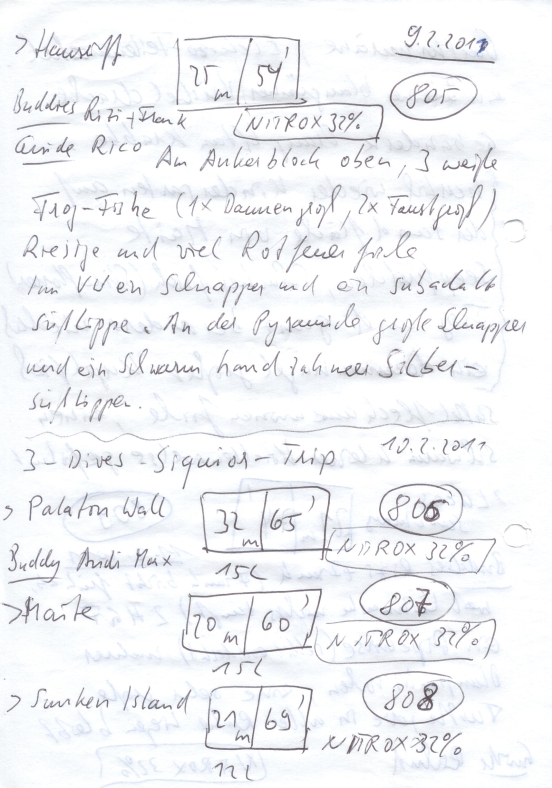 > Hausriff
9.2.2011
25 m 54'
805
Buddies Rizi + Frank
NITROX 32%
Guide Rico Am Ankerblock oben, 3 weiße
Frog-Fishe (1x Daumengroß, 2x Faustgroß)
Riesige und viel Rotfeuerfische
Im VW ein Schnapper und ein subadult
Süßlippe. An der Pyramide große Schnapper
und ein Schwarm handzahmer Silber-
süßlippen.
10.2.2011
3-Dives-Siquior-Trip
> Palaton Wall
32 m 65'
806
Buddy Andi Max
15L
NITROX 32%
> Maite
20 m 60'
807
15L
NITROX 32%
> Sunken Island
21 m 69'
808
12L
NITROX 32%